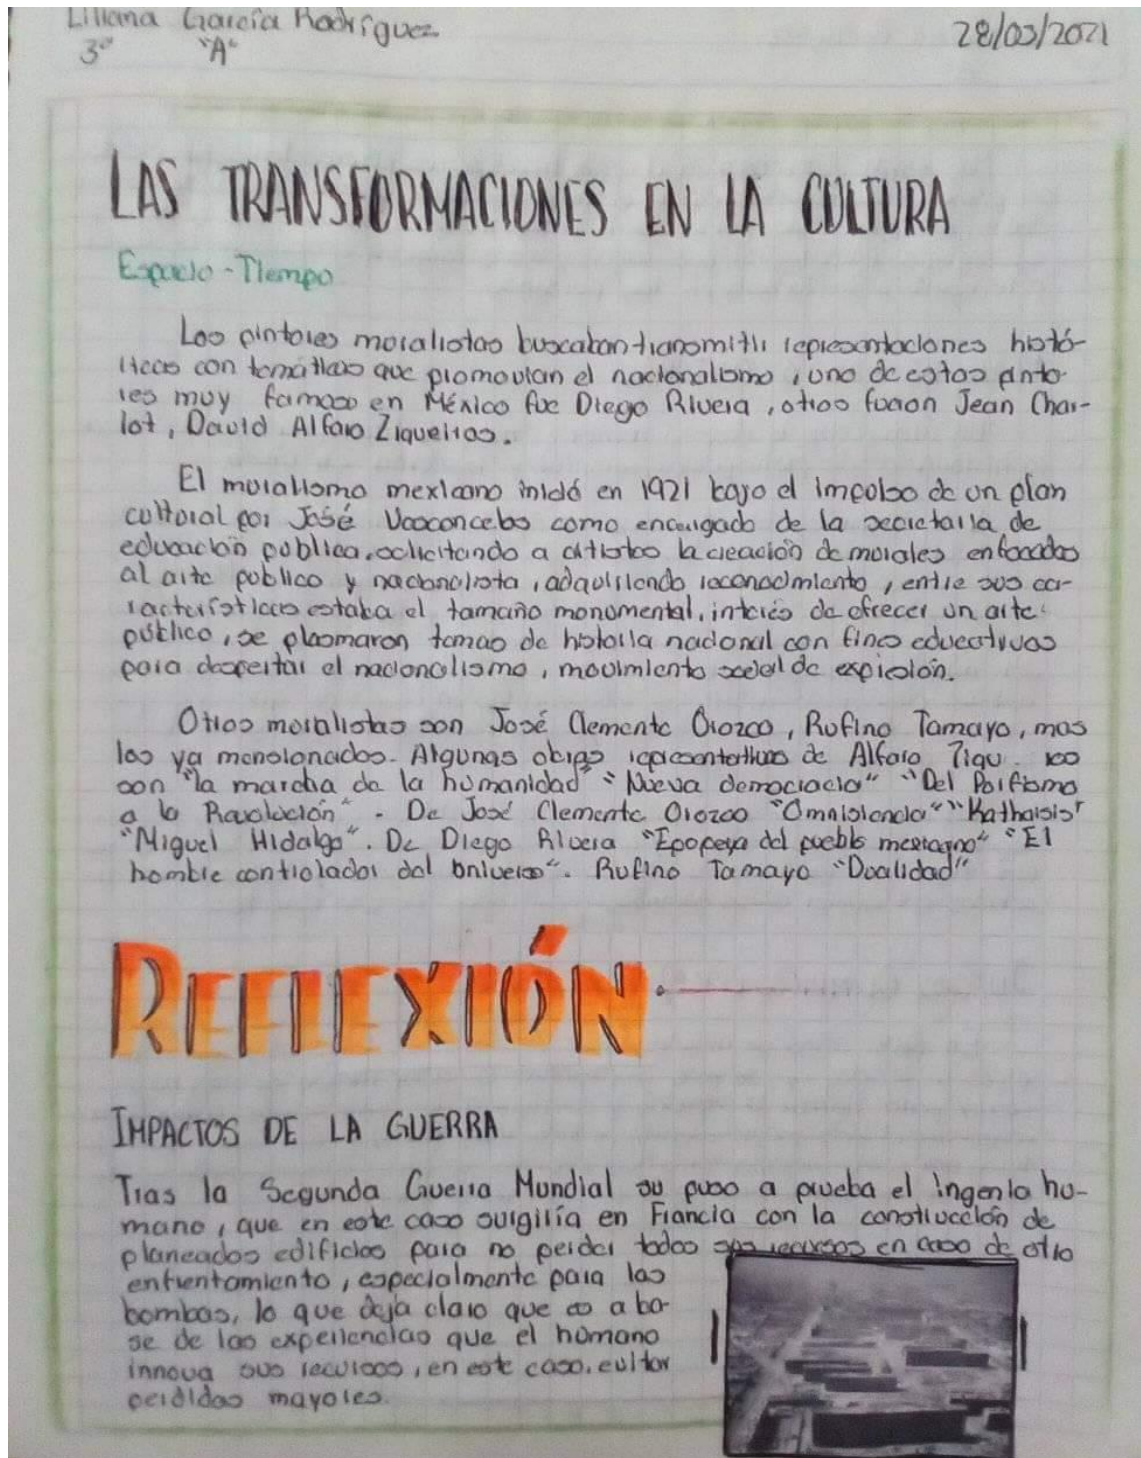 Liliana García Rodríguez
28/03/2021
3° "A"
LAS TRANSFORMACIONES EN LA CULTURA
Espacio - Tiempo
Los pintores moralistas buscaban transmitir representaciones histó-
ricas con temáticas que promovian el nacionalismo, uno de estos pinto-
res muy famoso en México fue Diego Rivera, otros fueron Jean Char-
lot, David Alfaro Ziqueiros.
El muralismo mexicano inició en 1921 bajo el impulso de un plan
cultural por José Vasconcelos como encargado de la secretaria de
educación publica, solicitando a artistas la creación de murales enfocados
al arte publico y nacionalista, adquiriendo reconocimiento, entre sus ca-
racterísticas estaba el tamaño monumental, interés de ofrecer un arte
público, se plasmaron temas de historia nacional con fines educativos
para despertar el nacionalismo, movimiento social de expresión.
Otros moralistas son José Clemente Orozco, Rufino Tamayo, mas
los ya mensionados. Algunas obras representativas de Alfaro
son "la marcha de la humanidad" "Nueva democracia" "Del Porfirismo
a la Revolución". De José Clemente Orozco "Omnisiencia" "Katharsis"
"Miguel Hidalgo". De Diego Rivera "Epopeya del pueblo mexicano" "El
hombre controlador del universo". Rufino Tamayo "Dualidad"
REFLEXIÓN
IMPACTOS DE LA GUERRA
Tras la Segunda Guerra Mundial su puso a prueba el ingenio hu-
mano, que en este caso surgiría en Francia con la construcción de
planeados edificios para no perder todos sus recursos en caso de otro
enfrentamiento, especialmente para las
bombas, lo que deja claro que es a ba-
se de las experiencias que el humano
innova sus recursos, en este caso, evitar
perdidas mayores.